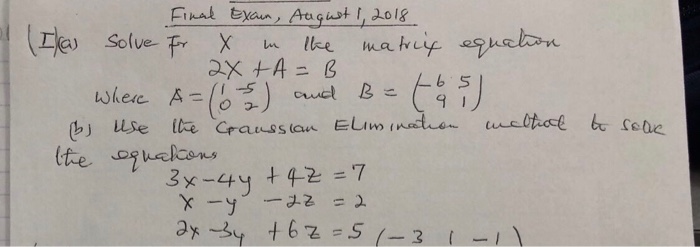 Final Exam, August 1, 2018
(I)(a) Solve for X in the matrix equation
2X + A = B
Where A = (1 -5 and B = (-6 5
0 2) 9 1)
(b) Use the Graussian ELimination method to solve
the equations
3x - 4y + 4z = 7
x - y - 2z = 2
2x - 3y + 6z = 5 (-3 1 -1)